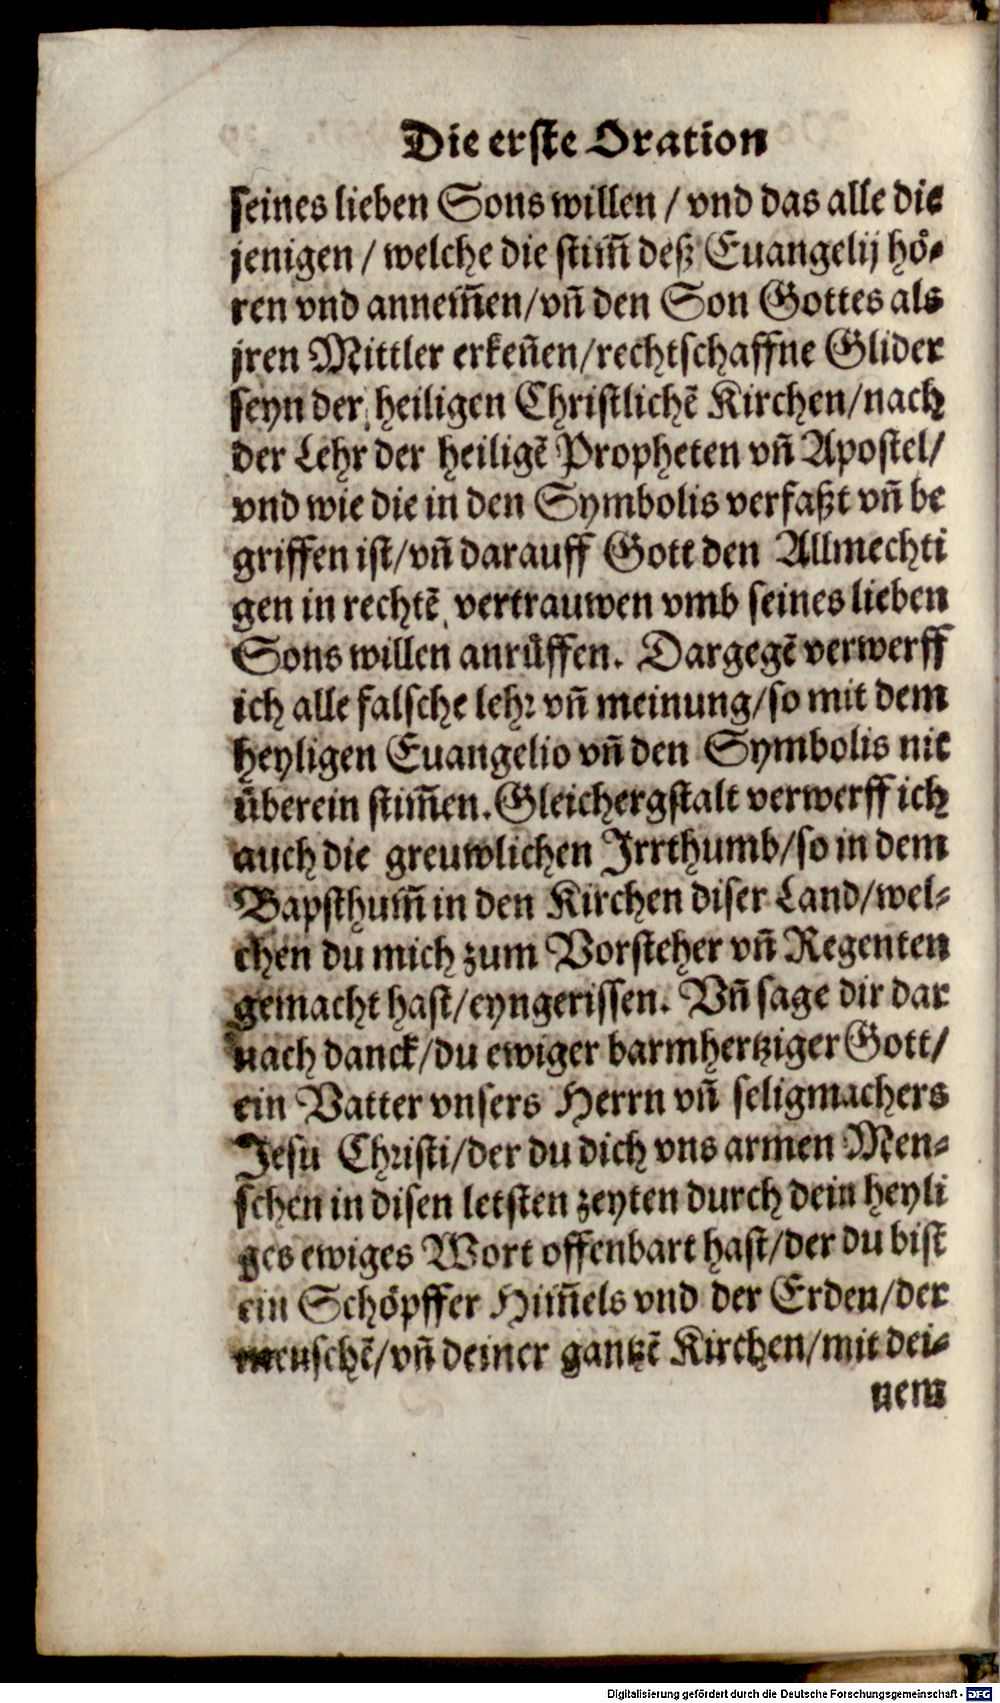 Die erste Oration
seines lieben Sons willen / vnd das alle die
jenigen / welche die stim̃ deß Euangelij hö⸗
ren vnd annem̃en/vñ den Son Gottes als
jren Mittler erkeñen/rechtschaffne Glider
seyn der heiligen Christlichẽ Kirchen/nach
der Lehr der heiligẽ Propheten vñ Apostel/
vnd wie die in den Symbolis verfaßt vñ be
griffen ist/vñ darauff Gott den Allmechti
gen in rechtẽ vertrauwen vmb seines lieben
Sons willen anrůffen. Dargegẽ verwerff
ich alle falsche lehr vñ meinung/so mit dem
heyligen Euangelio vñ den Symbolis nit
überein stim̃en. Gleichergstalt verwerff ich
auch die greuwlichen Irrthumb/so in dem
Bapsthum̃ in den Kirchen diser Land/wel⸗
chen du mich zum Vorsteher vñ Regenten
gemacht hast/eyngerissen. Vñ sage dir dar
nach danck/du ewiger barmhertziger Gott/
ein Vatter vnsers Herrn vñ seligmachers
Jesu Christi/der du dich vns armen Men⸗
schen in disen letsten zeyten durch dein heyli
ges ewiges Wort offenbart hast/der du bist
ein Schöpffer Him̃els vnd der Erden/der
menschẽ/vñ deiner gantzẽ Kirchen/mit dei⸗
nem
Digitalisierung gefördert durch die Deutsche Forschungsgemeinschaft - DFG